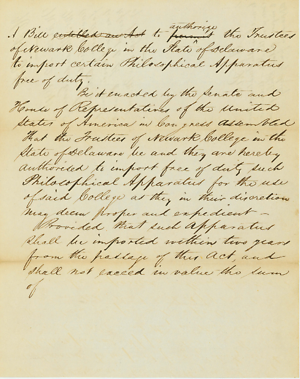 authorize
A Bill entitled an Act to permit the Trustees
of Newark College in the State of Delaware
to import certain Philosophical Apparatus
free of duty.
Be it enacted by the Senate and
House of Representatives of the United
States of America in Congress assembled
that the Trustees of Newark College in the
State of Delaware be and they are hereby
authorized to import free of duty such
Philosophical Apparatus for the use
of said College as they in their discretion
may deem proper and expedient—
Provided that such Apparatus
shall be imported within two years
from the passage of this Act, and
shall not exceed in value the sum
of